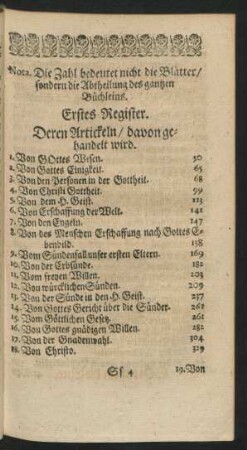 Nota. Die Zahl bedeutet nicht die Blätter/
sondern die Abtheilung des gantzen
Büchleins.
Erstes Register.
Deren Artickeln/ davon ge-
handelt wird.
1. Von GOttes Wesen. 50
2. Von Gottes Einigkeit. 65
3. Von den Personen in der Gottheit. 68
4. Von Christi Gottheit. 99
5. Von dem H. Geist. 123
6. Von Erschaffung der Welt. 142
7. Von den Engeln. 147
8. Von des Menschen Erschaffung nach Gottes E-
benbild. 158
9. Vom Sündenfall unser ersten Eltern. 169
10. Von der Erbsünde. 182
11. Vom freyen Willen. 203
12. Von würcklichen Sünden. 209
13. Von der Sünde in den H. Geist. 237
14. Von Gottes Gericht über die Sünder. 262
15. Vom Göttlichen Gesetz. 261
16. Von Gottes gnädigen Willen. 282
17. Von der Gnadenwahl. 304
18. Von Christo. 329
Sf 4
19. Von